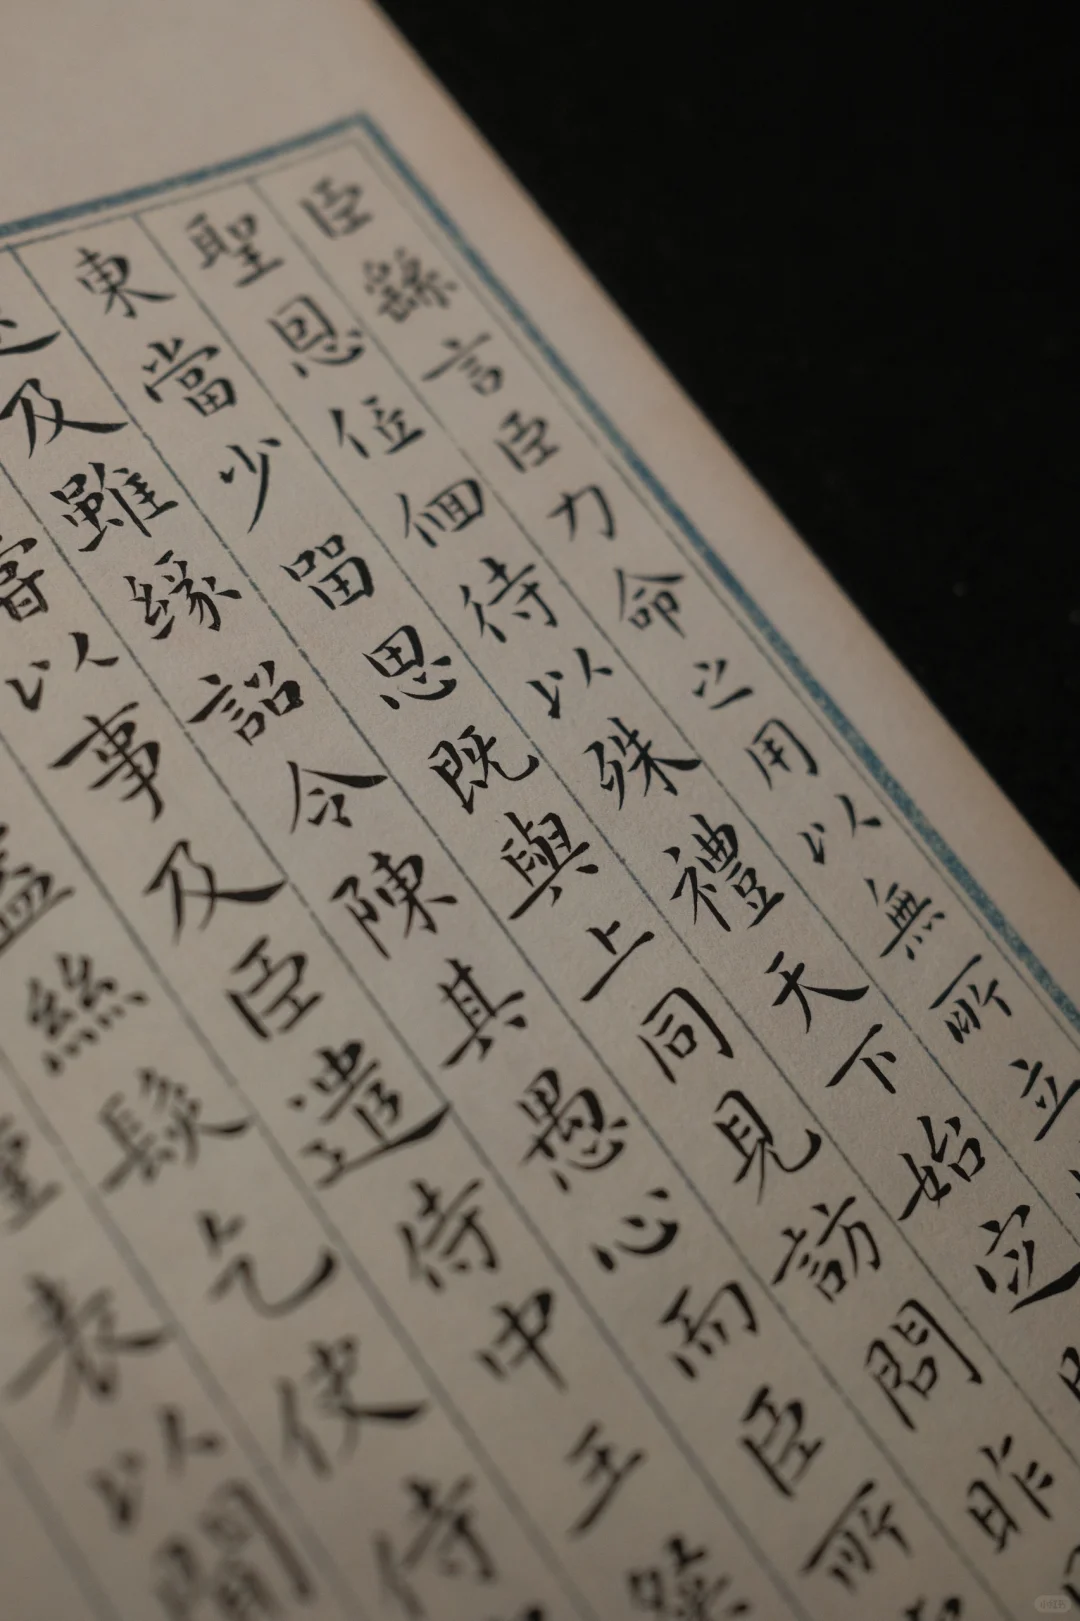 臣繇言臣力命之用以無所立
聖恩低佪待以殊禮天下始定
東當少留思既與上同見訪問昨
及雖緣詔令陳其愚心而臣所
嘗以事及臣遣侍中王粲
盡絲髮乞使侍
表以聞
小红书